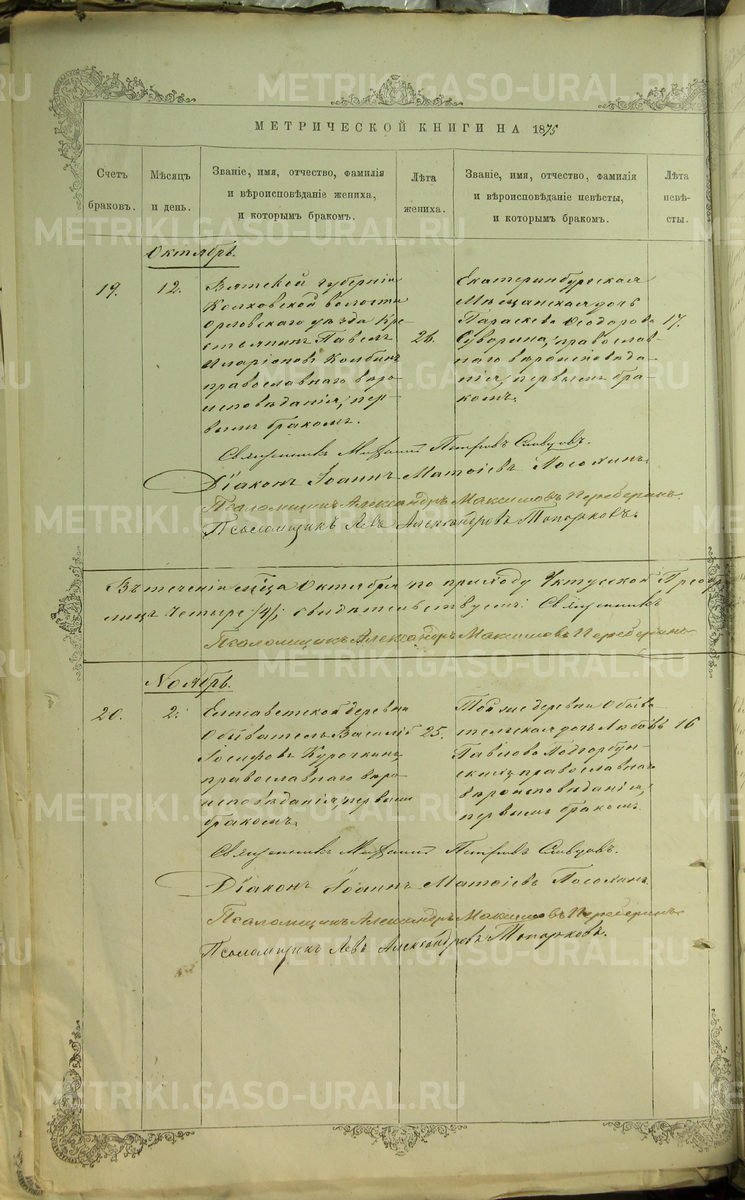 МЕТРИЧЕСКОЙ КНИГИ НА 1875
Счетъ
браковъ.
Мѣсяцъ
и день.
Званіе, имя, отчество, фамилія
и вѣроисповѣданіе жениха,
и которымъ бракомъ.
Лѣта
жениха.
Званіе, имя, отчество, фамилія
и вѣроисповѣданіе невѣсты,
и которымъ бракомъ.
Лѣта
невѣ-
сты.
Октябрь.
19.
12.
Вятской губерніи
волости
Орловскаго уѣзда Кре-
стьянинъ Павелъ
Иларіоновъ Колбинъ
православнаго вѣро-
исповѣданія, пер-
вымъ бракомъ.
26.
Екатеринбургская
Мѣщанская дочь
Параскева Ѳеодорова
Суворина, православ-
наго вѣроисповѣда-
нія, первымъ бра-
комъ.
17.
Священникъ Михаилъ Петровъ Словцовъ.
Діаконъ Іоаннъ Матѳіевъ
Псаломщикъ Александръ Максимовъ Переберинъ
Псаломщикъ Левъ Александровъ Топорковъ.
Въ теченіи мѣсяца Октября по приходу Уктусской
лицъ четыре /4/; свидѣтельствуемъ: Священникъ
Псаломщикъ Александръ Максимовъ Переберинъ
Ноябрь.
20.
2.
Елисаветской деревни
Обыватель Василій
Іосифовъ Курочкинъ,
православнаго вѣро-
исповѣданія, первымъ
бракомъ.
25.
Той же деревни Обыва-
тельская дочь Любовь
Павлова Подгорбун-
скихъ, православнаго
вѣроисповѣданія,
первымъ бракомъ.
16
Священникъ Михаилъ Петровъ Словцовъ.
Діаконъ Іоаннъ Матѳіевъ
Псаломщикъ Александръ Максимовъ Переберинъ
Псаломщикъ Левъ Александровъ Топорковъ.
METRIKI.GASO-URAL.RU